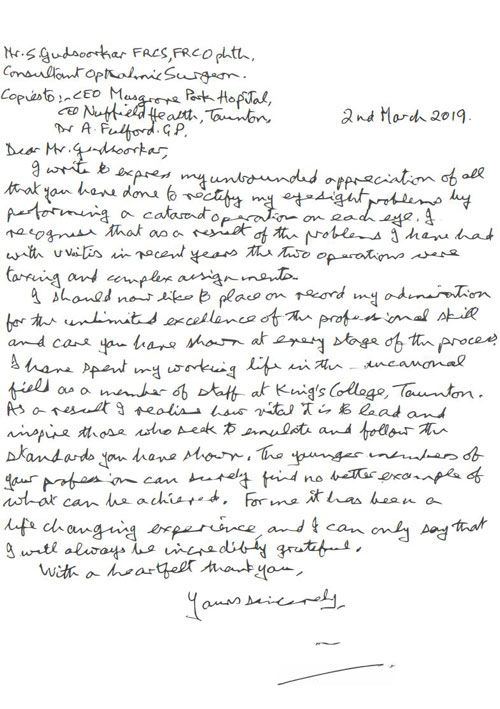 Mr. S. Gudsoorkar FRCS, FRCOphth,
Consultant Opthalmic Surgeon.
Copies to:- CEO Musgrove Park Hopital,
CEO Nuffield Health, Taunton,
Dr A. Fulford. G.P.
2nd March 2019.
Dear Mr. Gudsoorkar,
I write to express my unbounded appreciation of all
that you have done to rectify my eyesight problems by
performing a cataract operation on each eye. I
recognise that as a result of the problems I have had
with uvitis in recent years the two operations were
taxing and complex assignments.
I should now like to place on record my admiration
for the unlimited excellence of the professional skill
and care you have shown at every stage of the process.
I have spent my working life in the
field as a member of staff at King's College, Taunton.
As a result I realise how vital it is to lead and
inspire those who seek to emulate and follow the
standards you have shown. The younger members of
your profession can surely find no better example of
what can be achieved. For me it has been a
life changing experience, and I can only say that
I will always be incredibly grateful.
With a heartfelt thank you,
Yours sincerely,